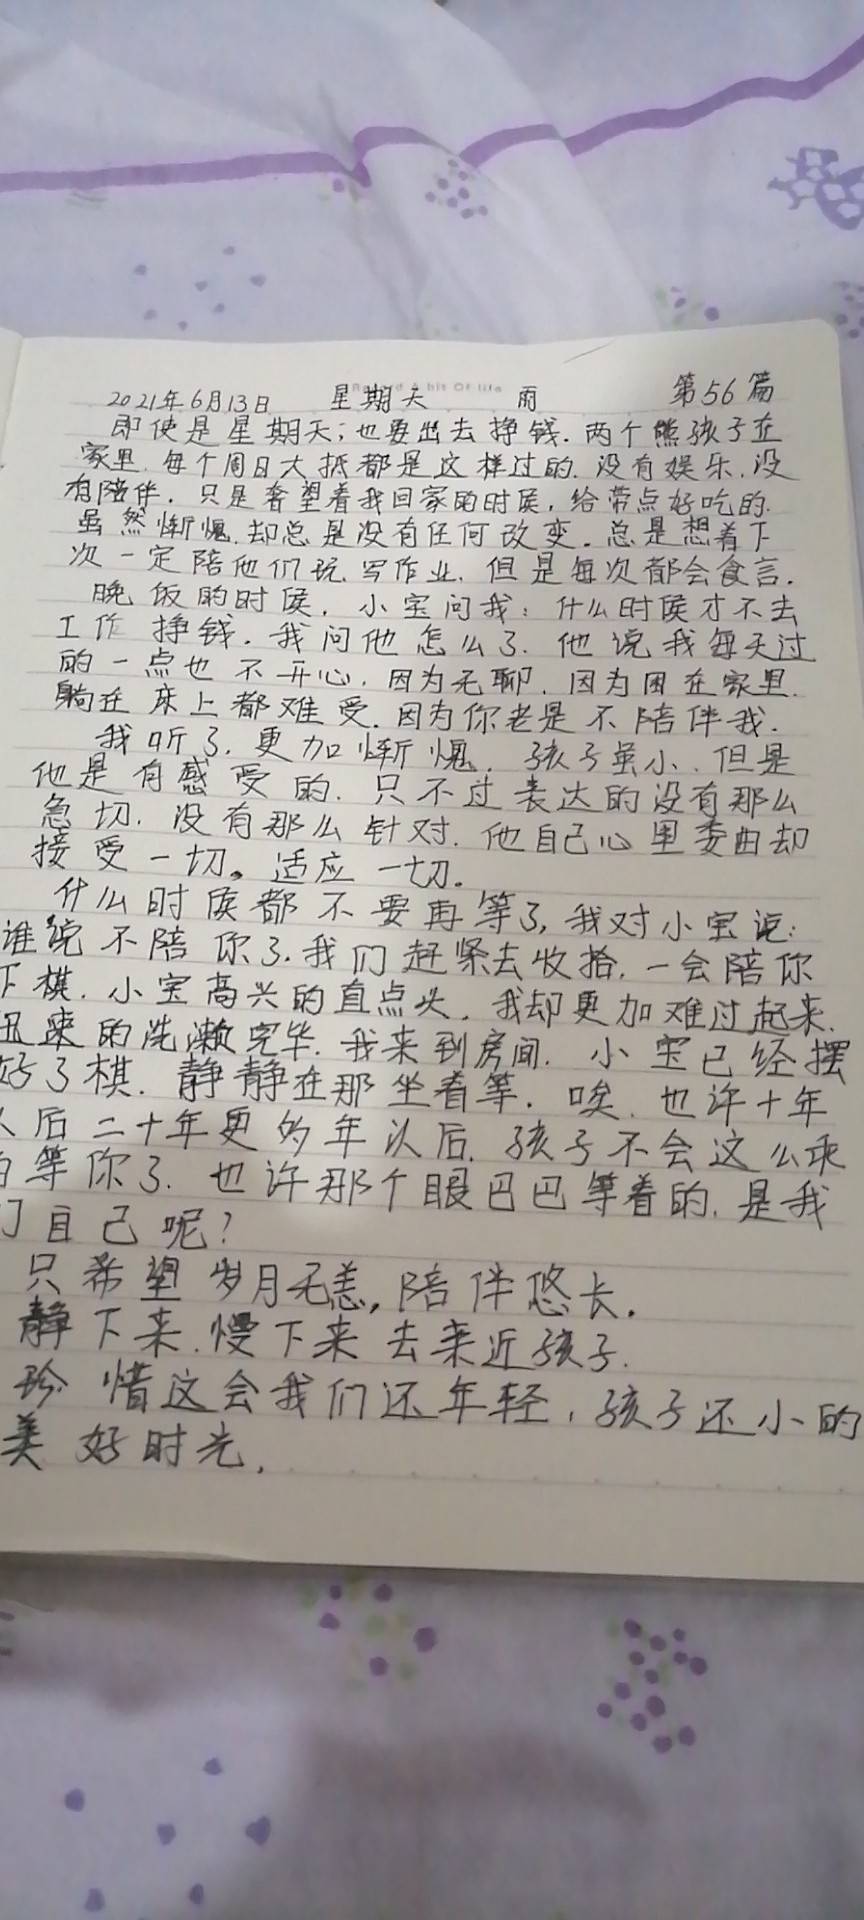 Record A bit Of life
2021年6月13日 星期天 雨 第56篇
即使是星期天;也要出去挣钱.两个熊孩子在
家里.每个周日大抵都是这样过的.没有娱乐.没
有陪伴.只是奢望着我回家的时候,给带点好吃的.
虽然惭愧.却总是没有任何改变.总是想着下
次一定陪他们玩.写作业.但是每次都会食言.
晚饭的时候.小宝问我:什么时候才不去
工作挣钱.我问他怎么了.他说我每天过
的一点也不开心.因为无聊.因为困在家里.
躺在床上都难受.因为你老是不陪伴我.
我听了.更加惭愧.孩子虽小.但是
他是有感受的.只不过表达的没有那么
急切.没有那么针对.他自己心里委曲却
接受一切。适应一切.
什么时候都不要再等了,我对小宝说:
谁说不陪你了.我们赶紧去收拾.一会陪你
下棋.小宝高兴的直点头.我却更加难过起来.
迅速的洗濑完毕.我来到房间.小宝已经摆
好了棋.静静在那坐着等.唉.也许十年
以后二十年更多年以后.孩子不会这么乖
的等你了.也许那个眼巴巴等着的.是我
们自己呢?
只希望岁月无恙,陪伴悠长.
静下来.慢下来去亲近孩子.
珍惜这会我们还年轻,孩子还小的
美好时光.